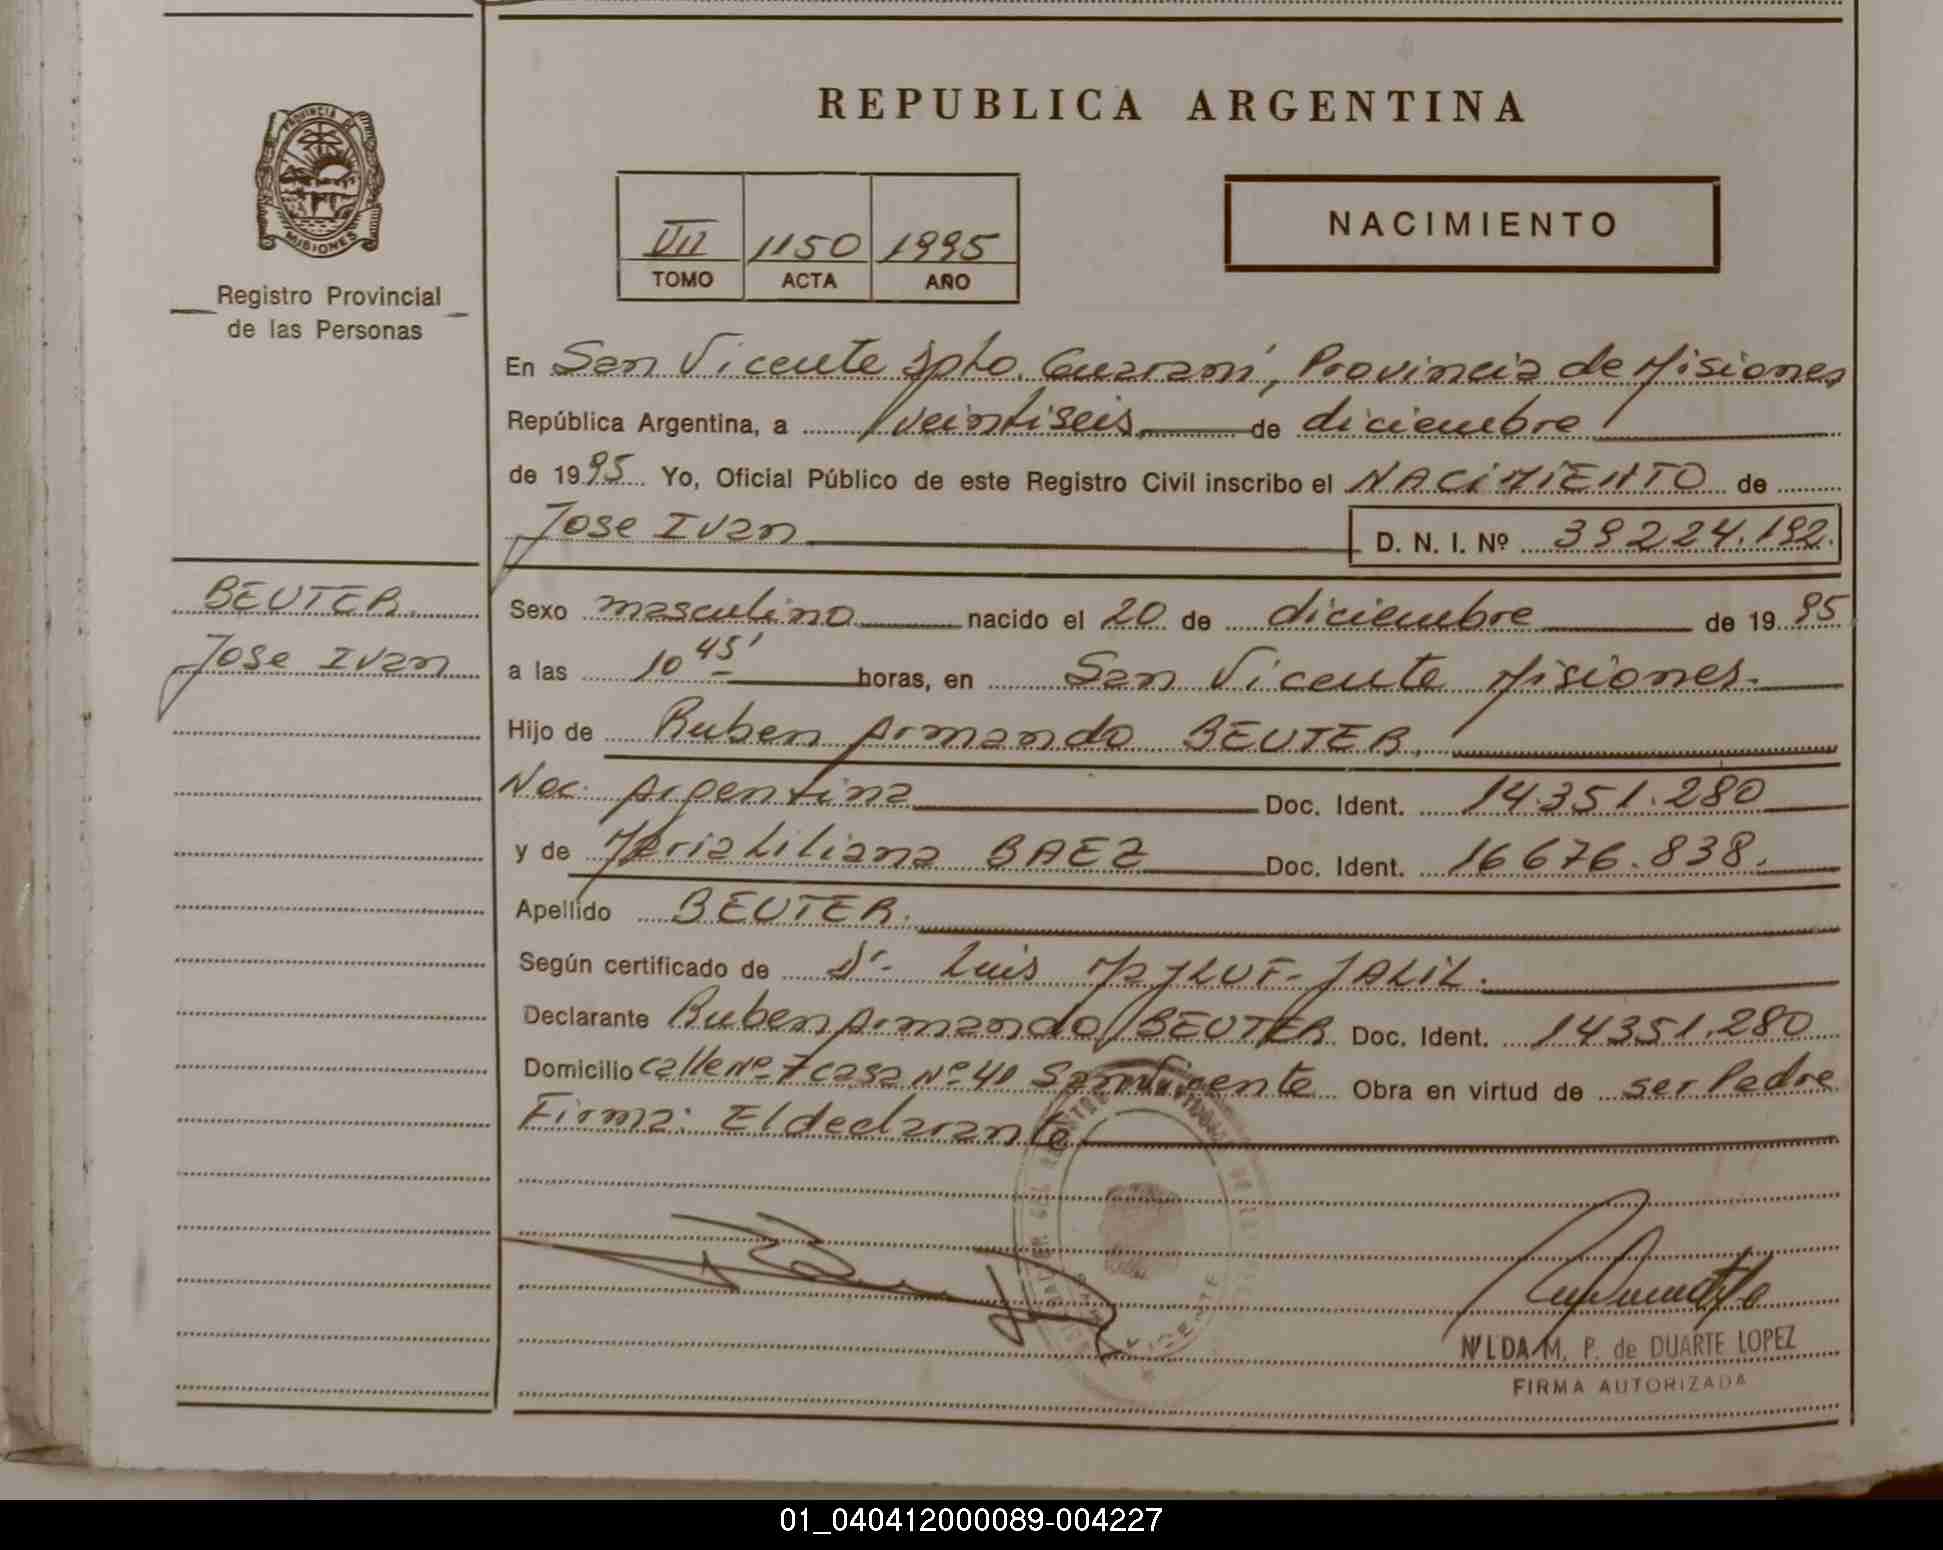 PROVINCIA DE
MISIONES
Registro Provincial
de las Personas
BEUTER.
Jose Ivan
REPUBLICA ARGENTINA
VII 1150 1995
TOMO ACTA AÑO
NACIMIENTO
En San Vicente Dpto. Guaraní, Provincia de Misiones
República Argentina, a veintiseis de diciembre
de 1995 Yo, Oficial Público de este Registro Civil inscribo el NACIMIENTO de
Jose Ivan D. N. I. Nº 39224.192.
Sexo masculino nacido el 20 de diciembre de 1995
a las 10 45' horas, en San Vicente Misiones.
Hijo de Ruben Armando BEUTER,
Nac. Argentina Doc. Ident. 14.351.280
y de Maria Liliana BAEZ Doc. Ident. 16676.838.
Apellido BEUTER.
Según certificado de Dr. Luis JALIL.
Declarante Ruben Armando BEUTER Doc. Ident. 14351.280
Domicilio calle Nº 7 casa Nº 41 San Vicente Obra en virtud de ser Padre
Firma: El declarante
VICENTE
NILDA M. P. de DUARTE LOPEZ
FIRMA AUTORIZADA
01_040412000089-004227